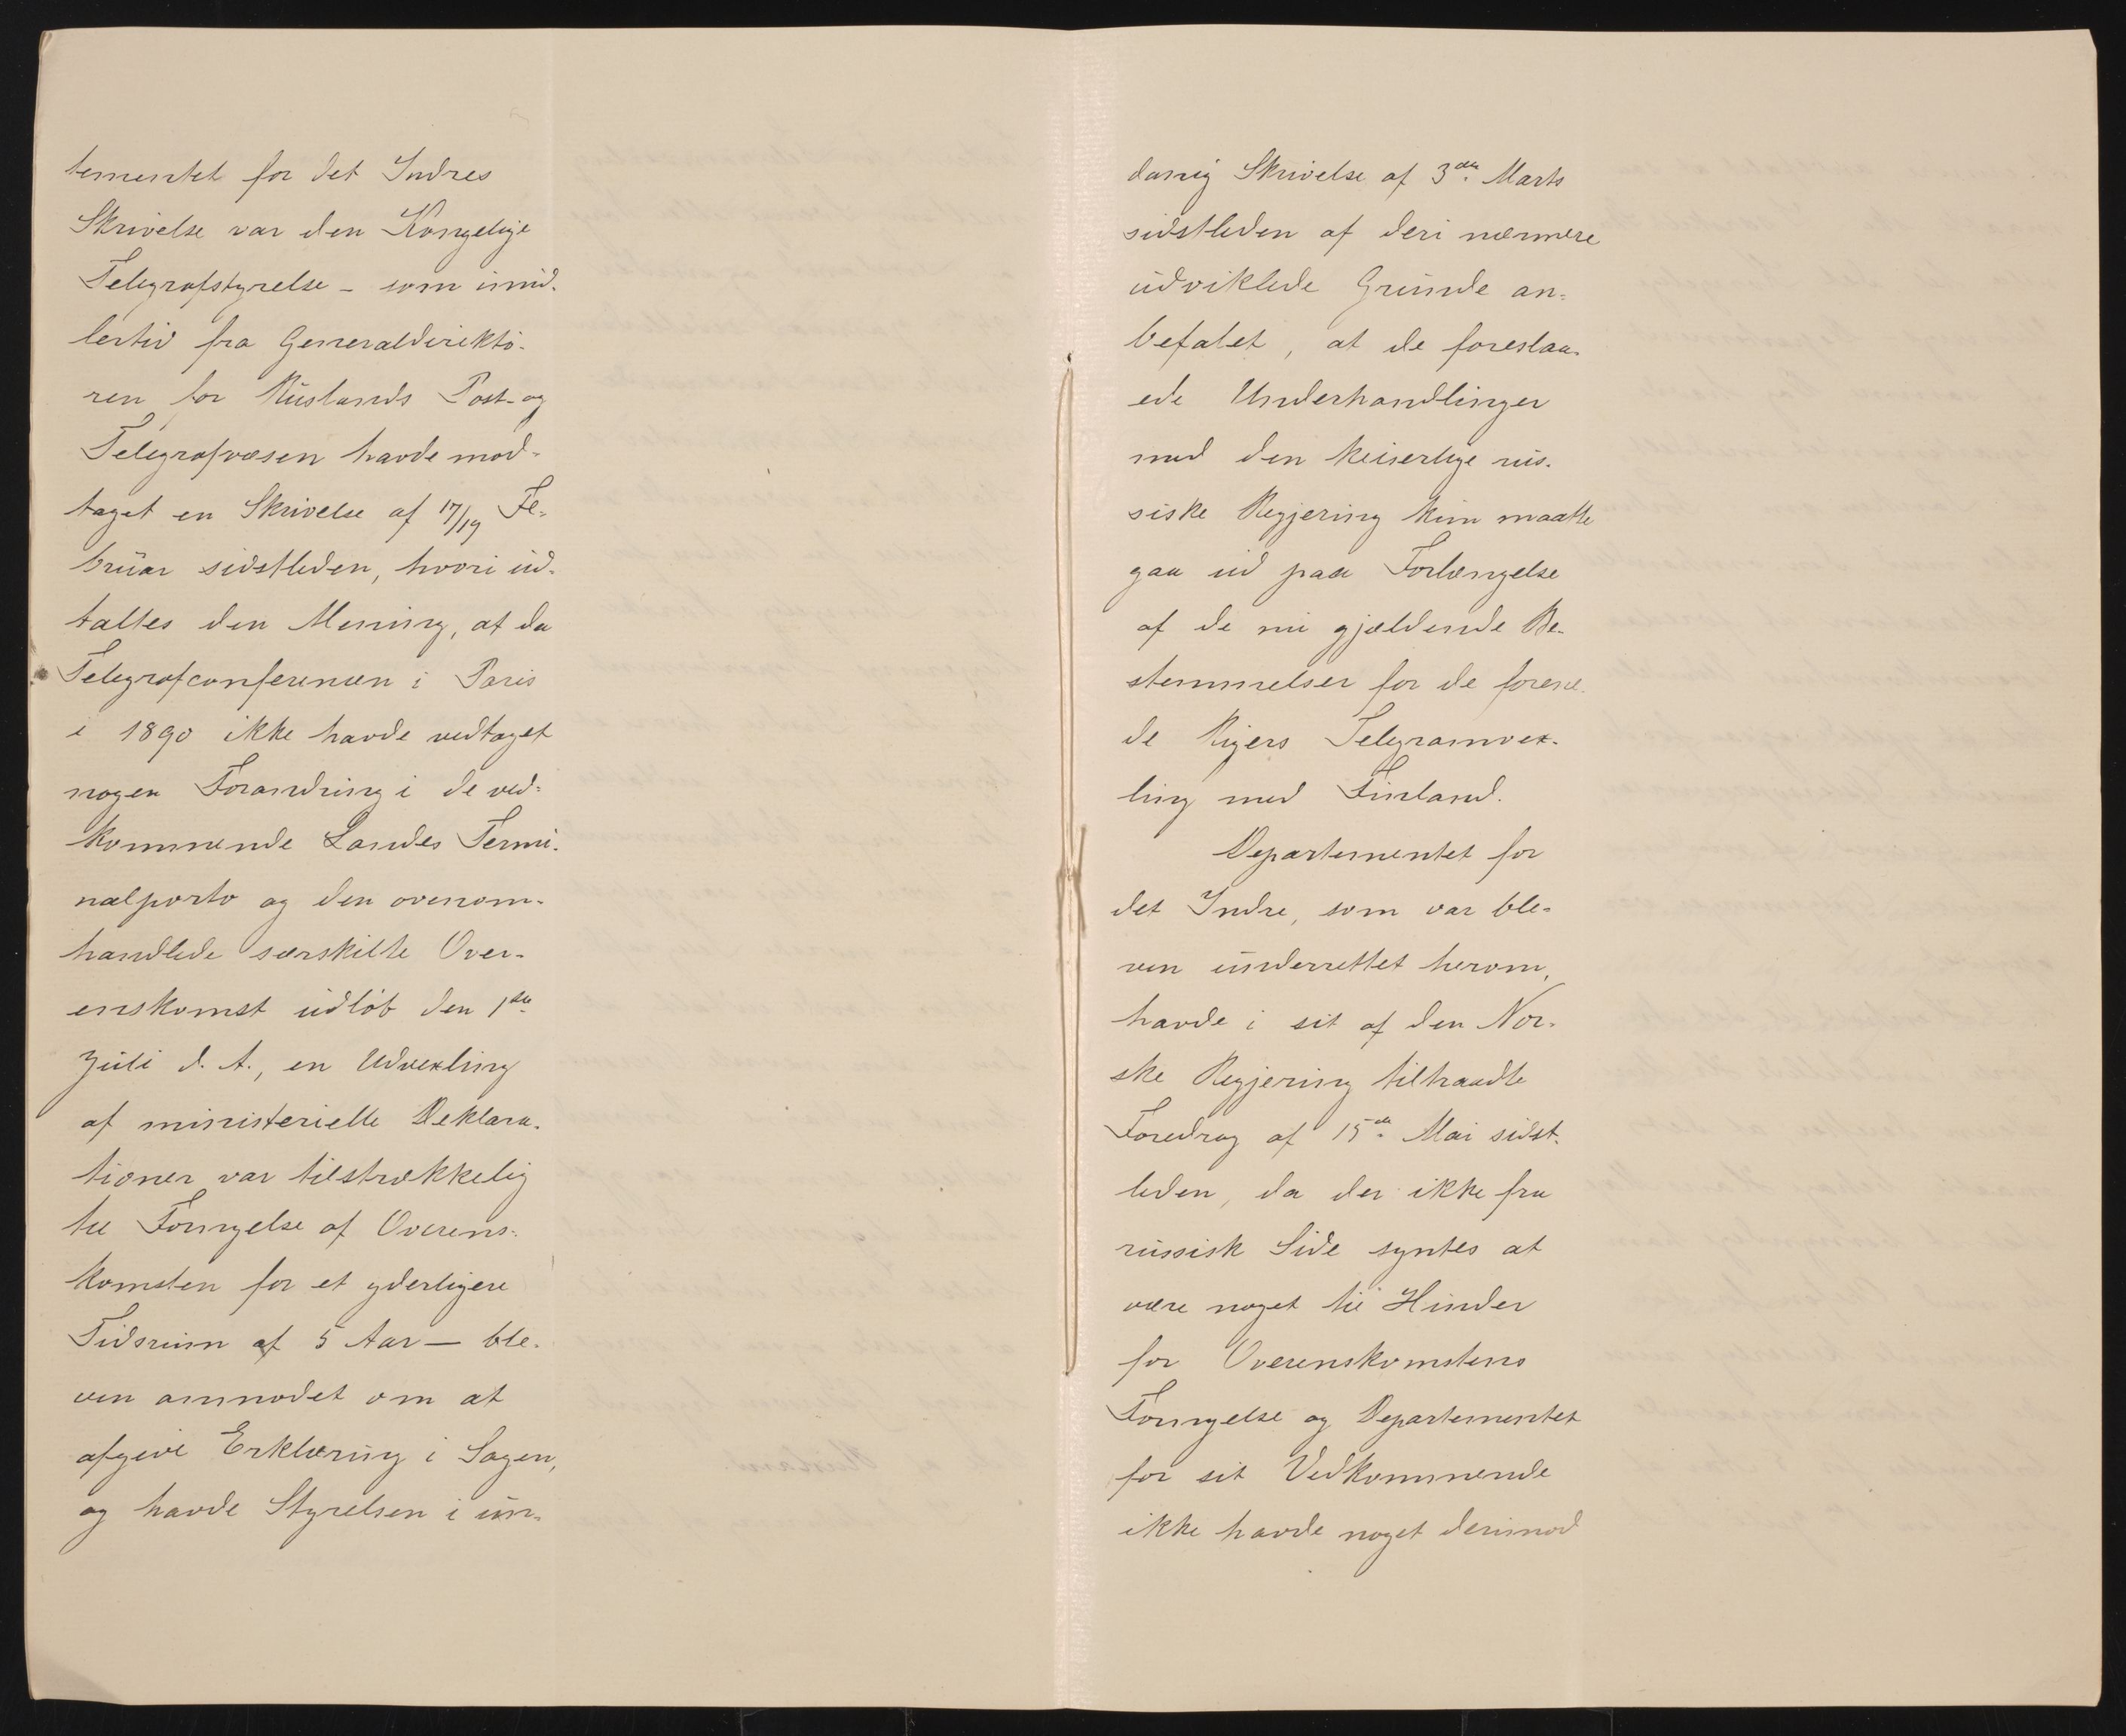 tementet for det Indres
Skrivelse var den Kongelige
Telegrafstyrelse – som imid-
lertid fra Generaldirektö-
ren for Ruslands Post- og
Telegrafvæsen havde mod-
taget en Skrivelse af 17/19 Fe-
bruar sidstleden, hvori ud-
taltes den Mening, at da
Telegrafconferencen i Paris
i 1890 ikke havde vedtaget
nogen Forandring i de ved-
kommende Landes Termi-
nalporto og den ovenom-
handlede særskilte Over-
enskomst udløb den 1ste
Juli d. A., en Udvexling
af ministerielle Deklara-
tioner var tilstrækkelig
til Fornyelse af Overens-
komsten for et yderligere
Tidsrum af 5 Aar – ble-
ven anmodet om at
afgive Erklæring i Sagen,
og havde Styrelsen i un-
danig Skrivelse af 3die Marts
sidstleden af deri nærmere
udviklede Grunde an-
befalet, at de foreslaa-
ede Underhandlinger
med den keiserlige rus-
siske Regjering kun maatte
gaa ud paa Forlængelse
af de nu gjældende Be-
stemmelser for de forene-
de Rigers Telegramvex-
ling med Finland.
Departementet for
det Indre, som var ble-
ven underrettet herom,
havde i sit af den Nor-
ske Regjering tiltraadte
Foredrag af 15de Mai sidst-
leden, da der ikke fra
russisk Side syntes at
være noget til Hinder
for Overenskomstens
Fornyelse og Departementet
for sit Vedkommende
ikke havde noget derimod